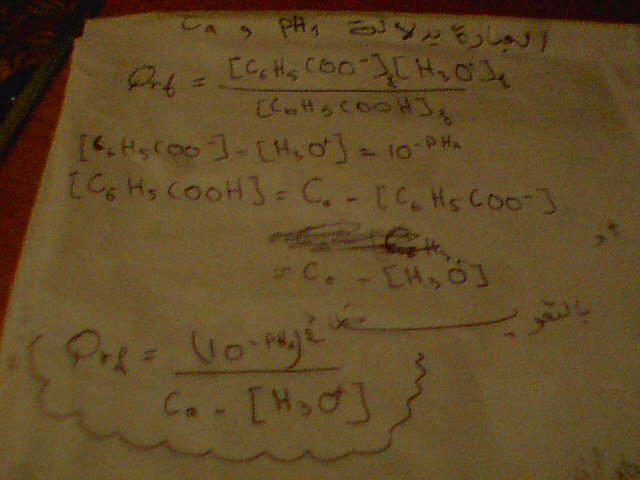 العبارة بدلالة pH₁ و C₀
Qrf = [C₆H₅COO⁻]f [H₃O⁺]f / [C₆H₅COOH]f
[C₆H₅COO⁻] = [H₃O⁺] = 10^-pH₁
[C₆H₅COOH] = C₀ - [C₆H₅COO⁻]
= C₀ - [H₃O⁺]
بالتعويض
Qrf = (10^-pH₁)² / C₀ - [H₃O⁺]